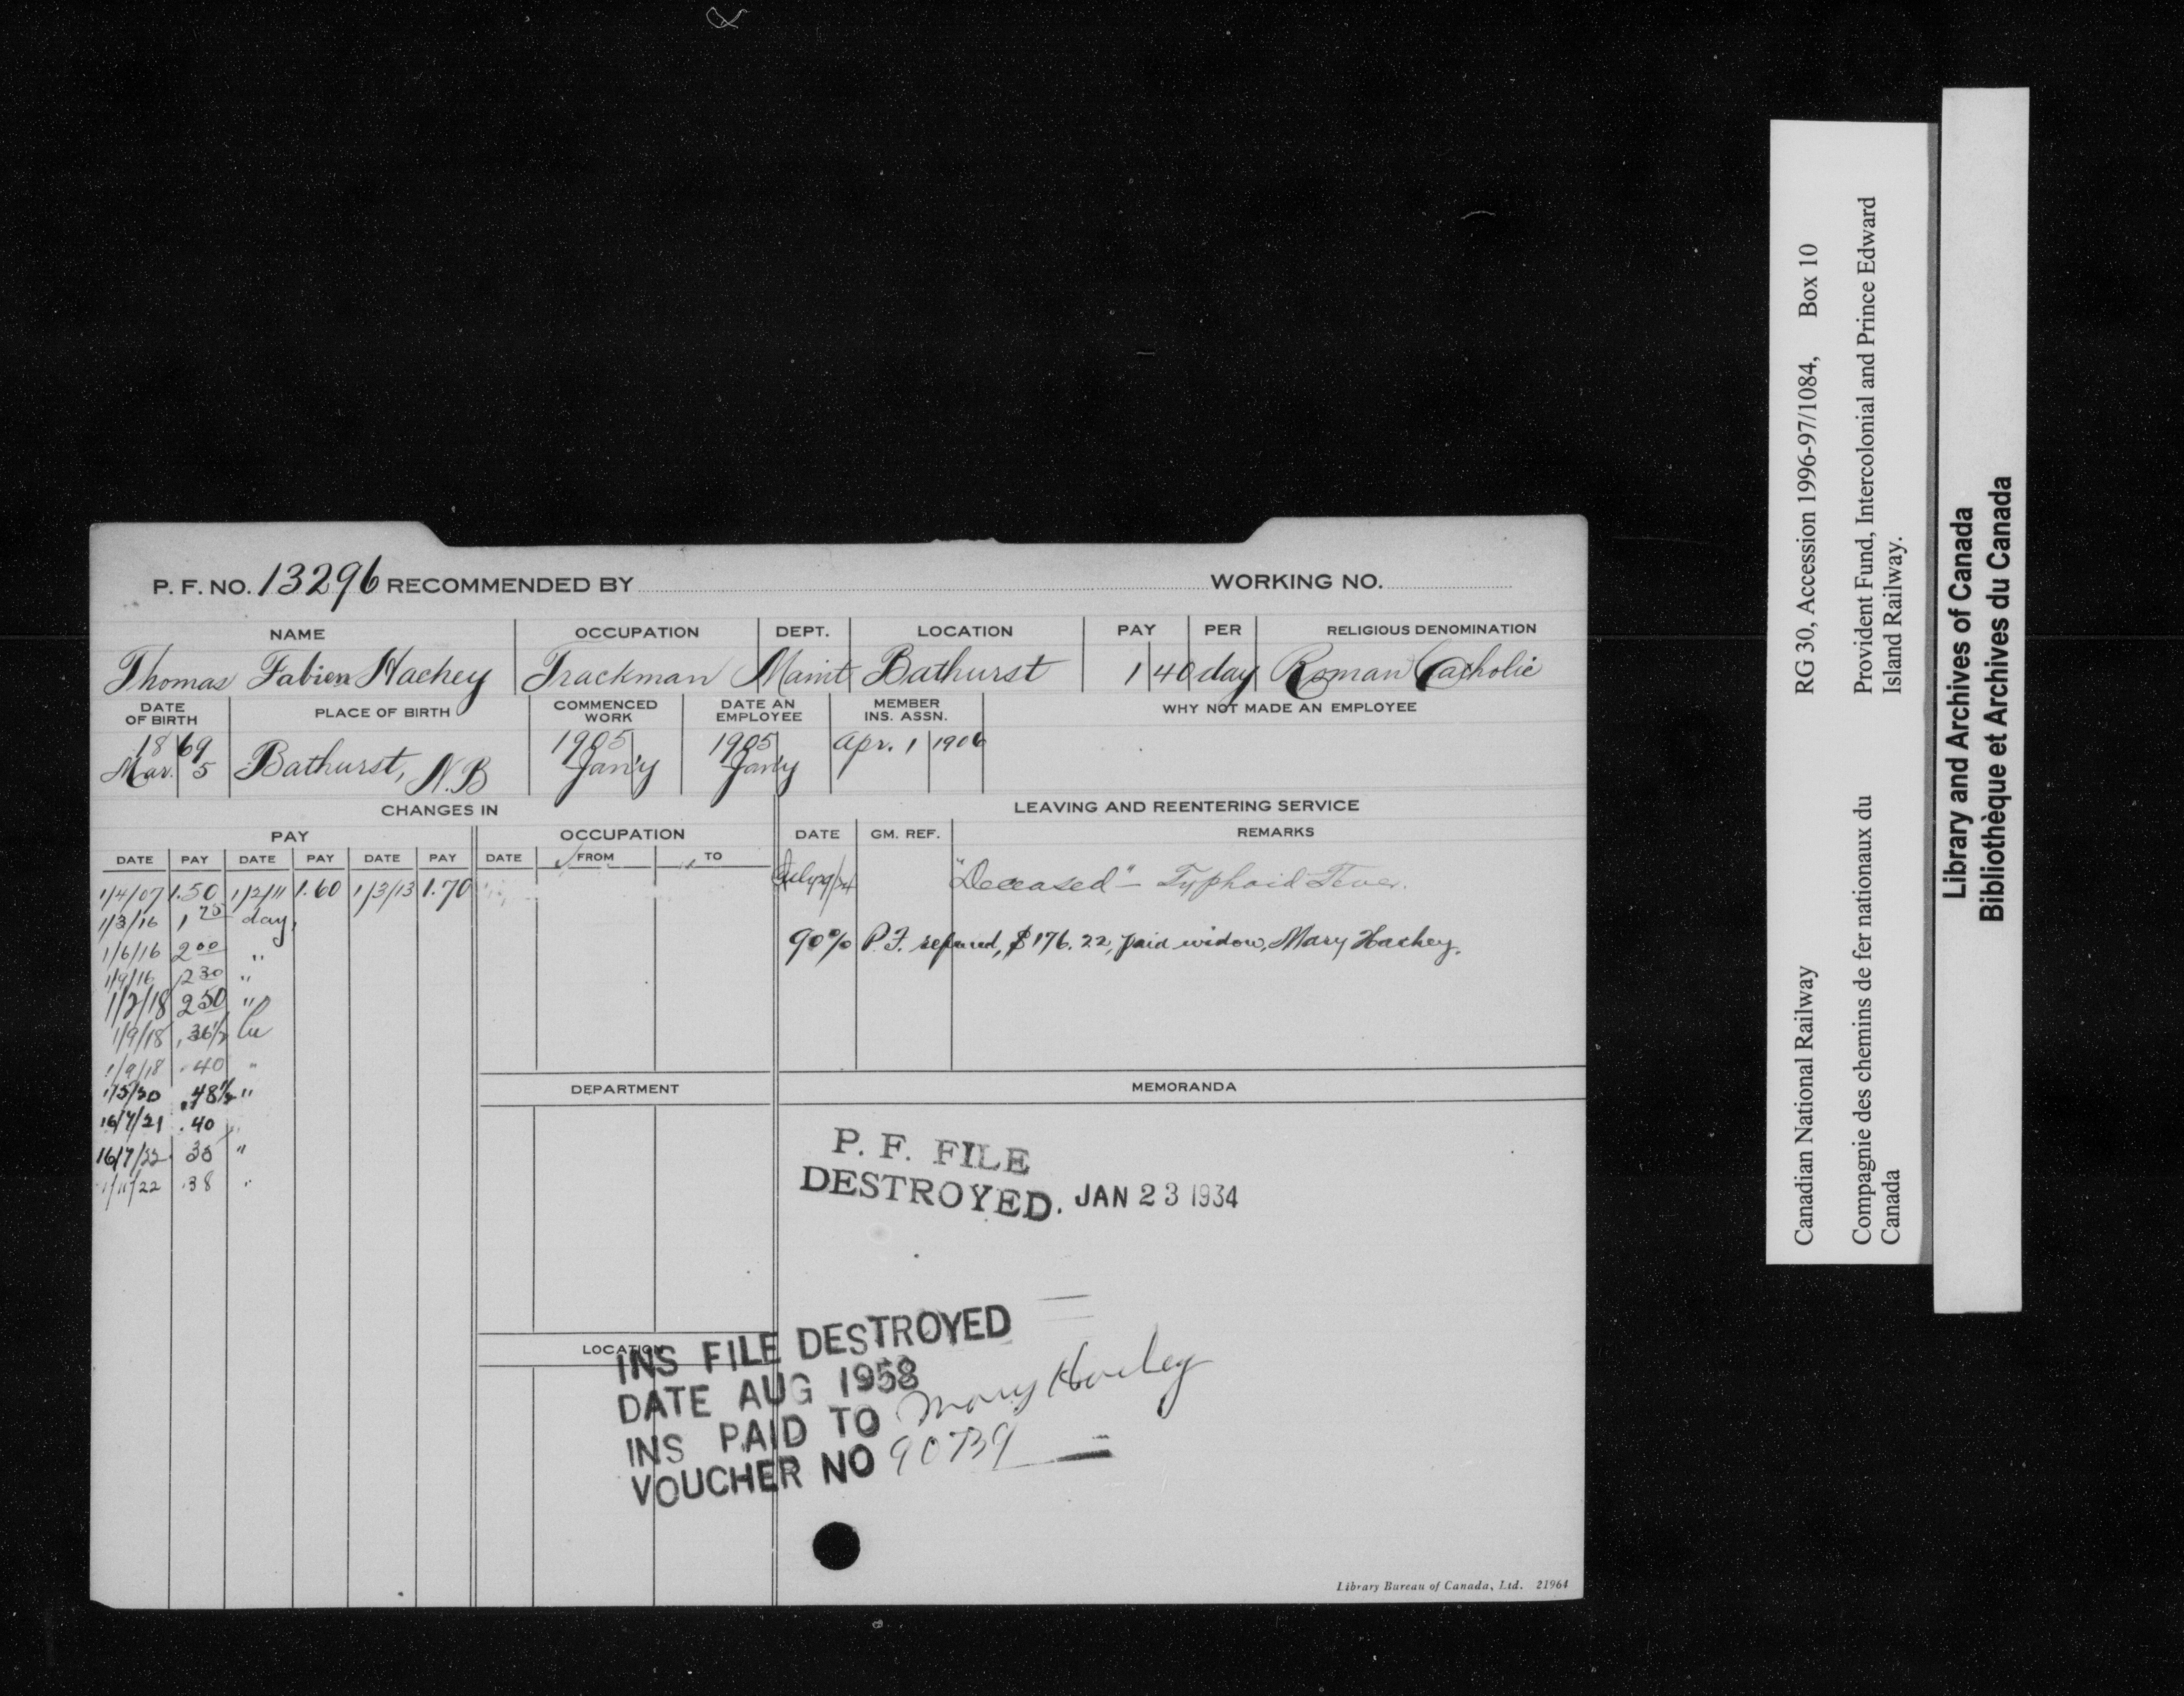 P. F. NO. 13296 RECOMMENDED BY WORKING NO.
NAME OCCUPATION DEPT. LOCATION PAY PER RELIGIOUS DENOMINATION
Thomas Fabien Hachey Trackman Maint Bathurst 1 40 day Roman Catholic
DATE OF BIRTH PLACE OF BIRTH COMMENCED WORK DATE AN EMPLOYEE MEMBER INS. ASSN. WHY NOT MADE AN EMPLOYEE
1869 1905 1905 Apr. 1 1906
Mar. 5 Bathurst, N.B Jan'y Jan'y
CHANGES IN LEAVING AND REENTERING SERVICE
PAY OCCUPATION DATE GM. REF. REMARKS
DATE PAY DATE PAY DATE PAY DATE FROM TO
1/4/07 1.50 1/2/11 1.60 1/3/13 1.70 "Deceased" - Typhoid Fever.
1/3/16 1 75 day,
1/6/16 2 00 "
90% P.F. refund, $176.22, paid widow, Mary Hachey.
1/9/16 2 30 "
1/2/18 2 50 "
1/9/18 .36½
1/9/18 .40 "
.48½ "
DEPARTMENT MEMORANDA
16/7/21 .40 "
16/7/22 "
1/11/22 .38 "
P. F. FILE
DESTROYED. JAN 23 1934
LOCATION
INS FILE DESTROYED
DATE AUG 1958
INS PAID TO Mary Hachey
VOUCHER NO 90739
Library Bureau of Canada, Ltd. 21964
Canadian National Railway RG 30, Accession 1996-97/1084, Box 10
Compagnie des chemins de fer nationaux du Provident Fund, Intercolonial and Prince Edward
Canada Island Railway.
Library and Archives of Canada
Bibliothèque et Archives du Canada